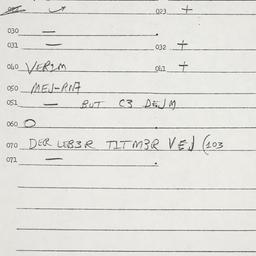 023 +
030 —
031 — 032 +
040 VERIM 041 +
050 MEJ-RIA
051 — BUT C3 DEJM
060 O
070 DER LEB3R TITM3R VEJ (103
071 —